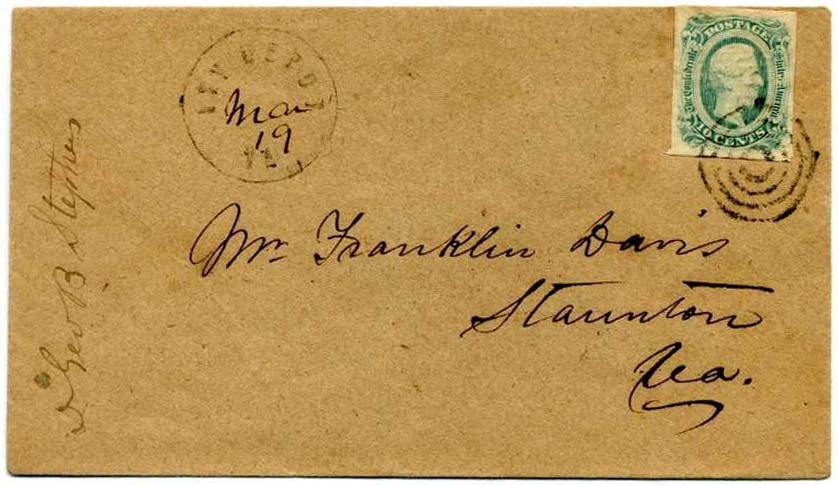 DEPOT
Mar
19
VA
POSTAGE
The Confederate States of America
10 CENTS
Geo B Stephens
Mr Franklin Davis
Staunton
Va.